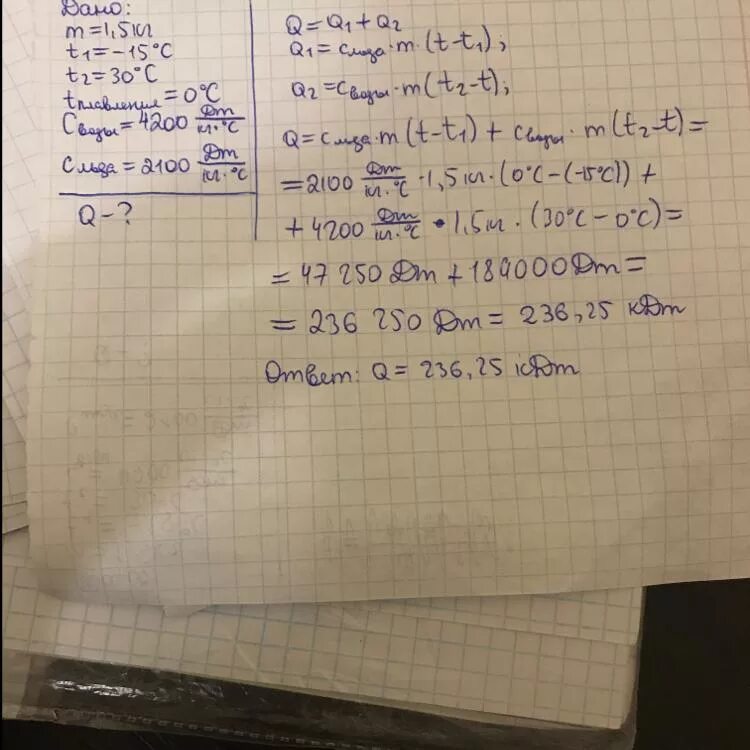 Дано:
m=1,5кг
t₁=-15°C
t₂=30°C
tплавления=0°C
Cводы=4200 Дж/кг·°C
Cльда=2100 Дж/кг·°C
Q-?
Q=Q₁+Q₂
Q₁=Cльда·m·(t-t₁);
Q₂=Cводы·m(t₂-t);
Q=Cльда·m(t-t₁)+Cводы·m(t₂-t)=
=2100 Дж/кг·°C ·1,5кг·(0°C-(-15°C))+
+4200 Дж/кг·°C ·1,5кг·(30°C-0°C)=
=47 250 Дж+189000Дж=
=236 250 Дж=236,25 кДж
Ответ: Q=236,25 кДж